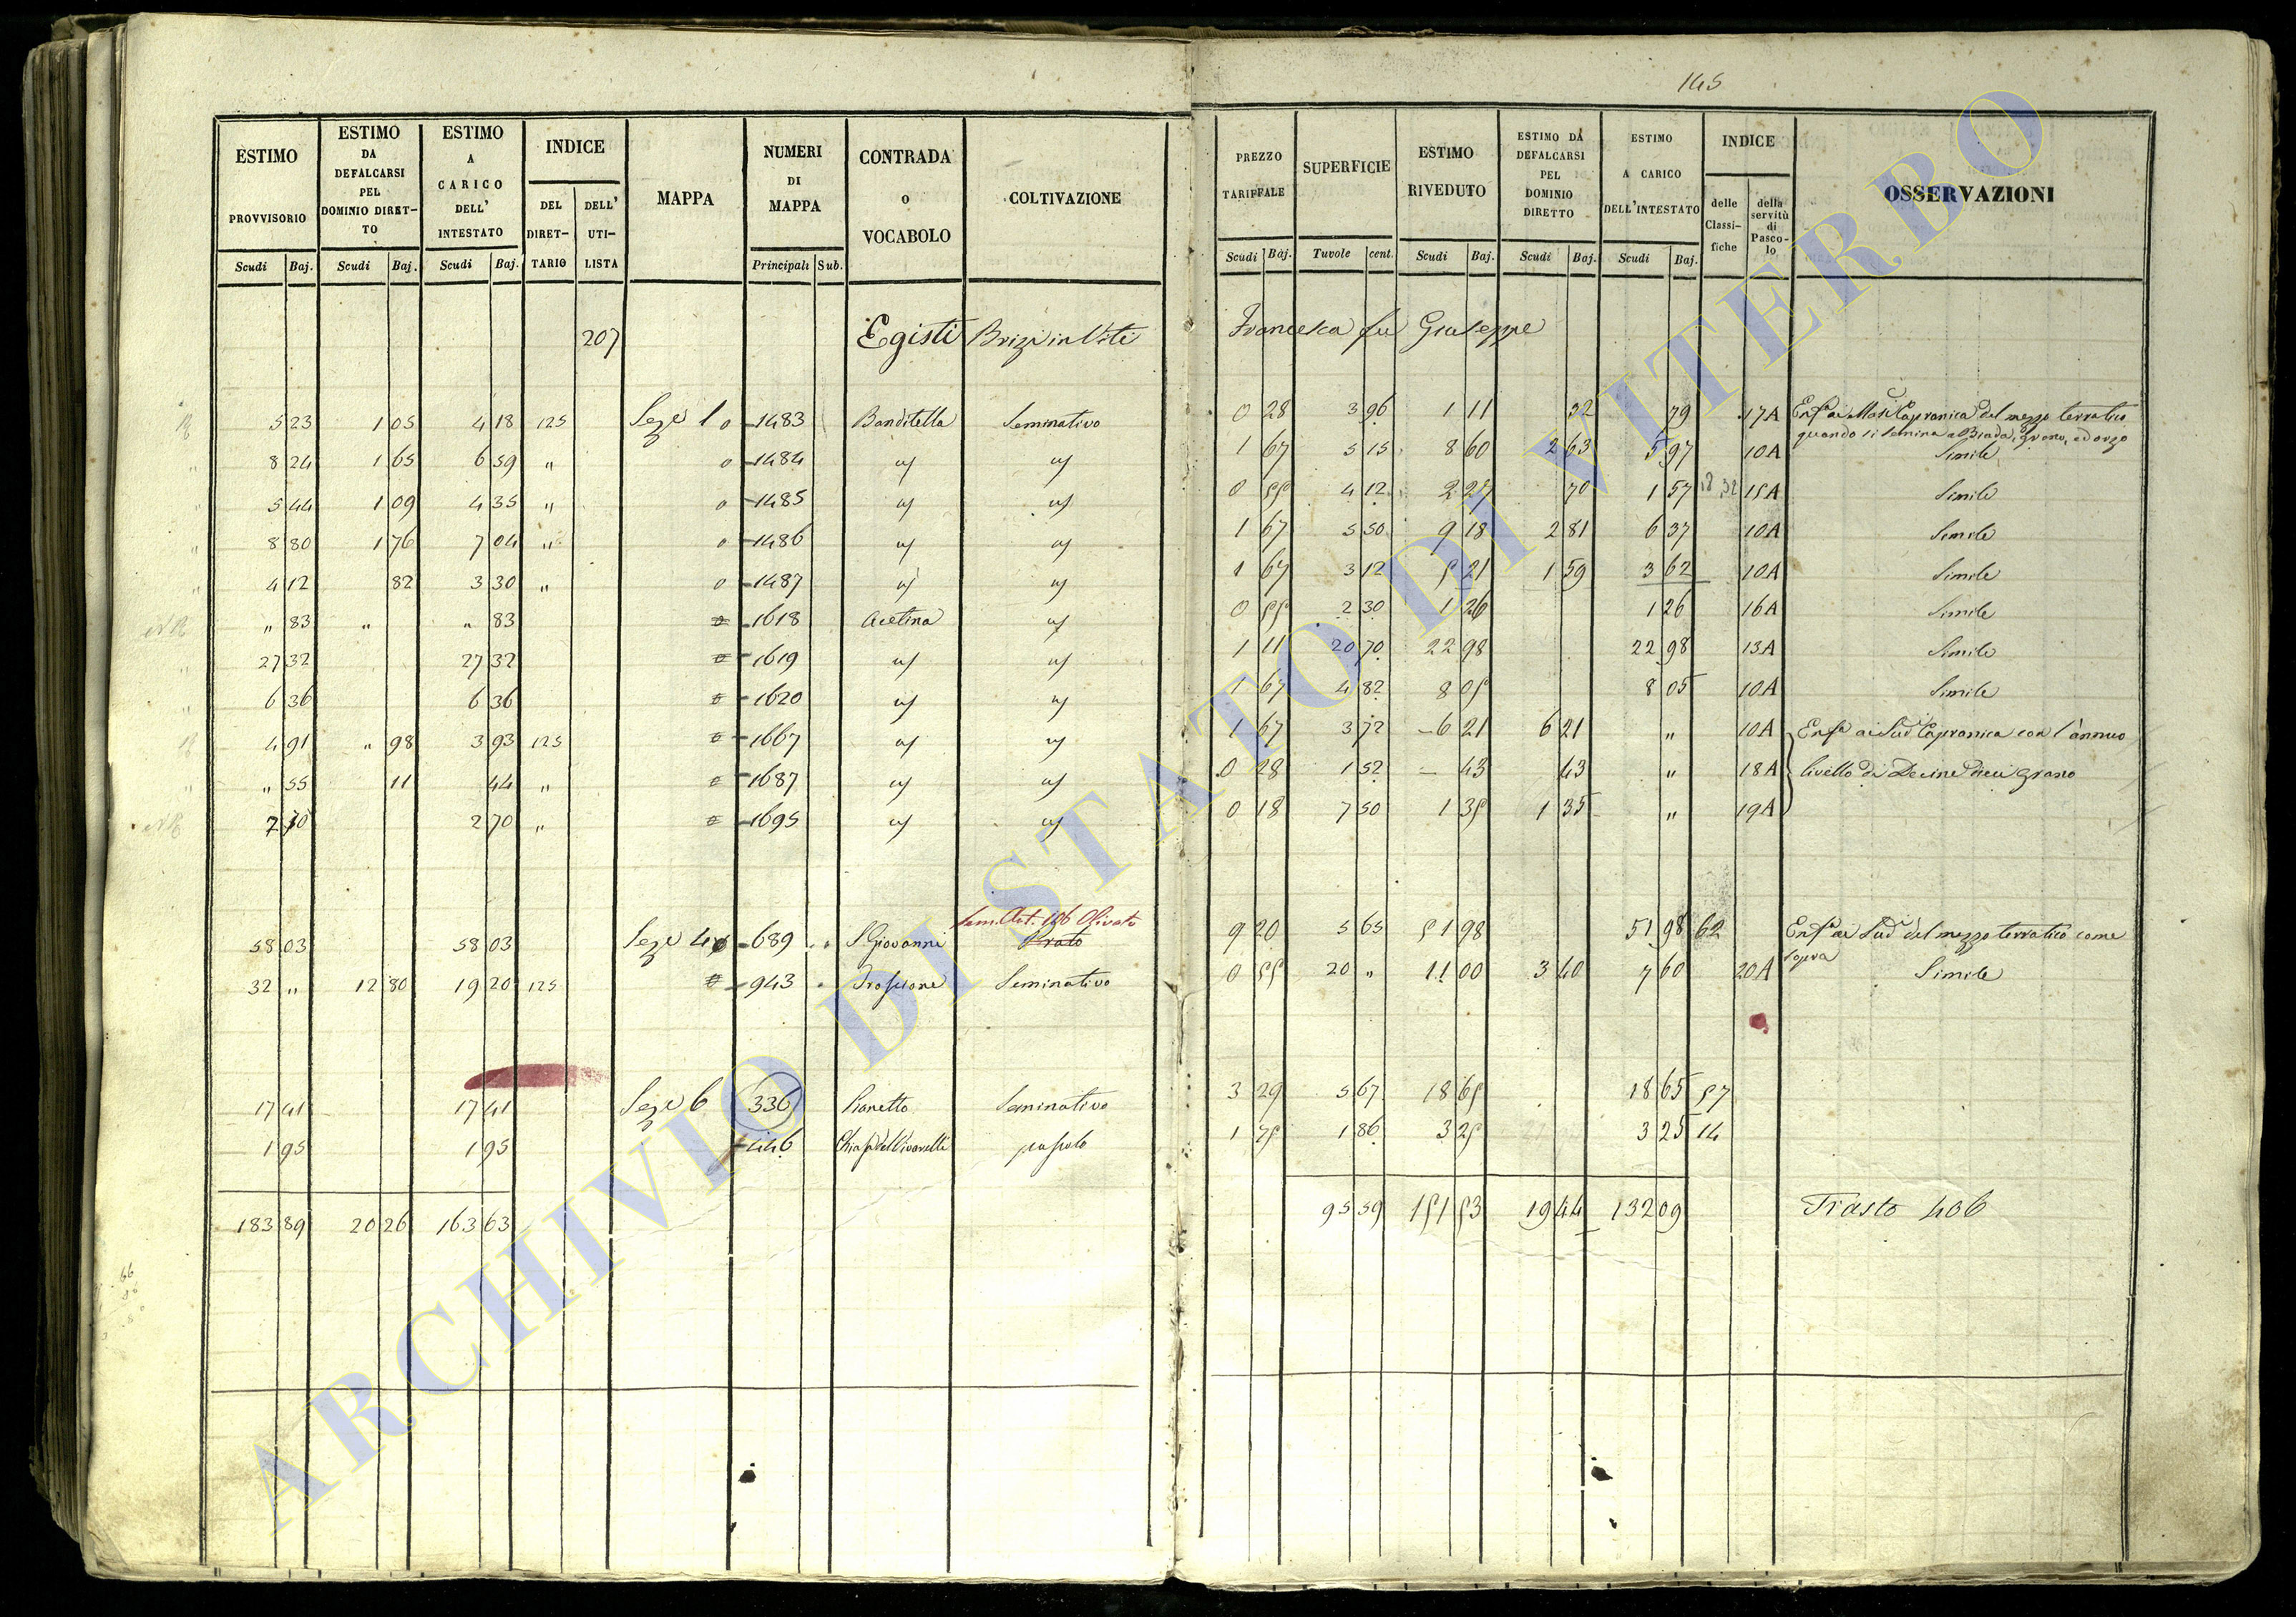 145
ESTIMO PROVVISORIO
ESTIMO DA DEFALCARSI PEL DOMINIO DIRET-TO
ESTIMO A CARICO DELL' INTESTATO
INDICE
DEL DIRET-TARIO
DELL' UTI-LISTA
MAPPA
NUMERI DI MAPPA
CONTRADA o VOCABOLO
COLTIVAZIONE
PREZZO TARIFFALE
SUPERFICIE
ESTIMO RIVEDUTO
ESTIMO DA DEFALCARSI PEL DOMINIO DIRETTO
ESTIMO A CARICO DELL'INTESTATO
INDICE
delle Classi-fiche
della servitù di Pasco-lo
OSSERVAZIONI
Scudi Baj. Scudi Baj. Scudi Baj. Principali Sub. Scudi Baj. Tavole cent. Scudi Baj. Scudi Baj. Scudi Baj.
207 Egisti Brizi in Viti Francesca fu Giuseppe
5 23 1 05 4 18 125 Seze 1 0 1483 Banditella Seminativo 0 28 3 96 1 11 32 79 17A Enfa ai Mari Capranica del mezzo terratico
quando si semina a Biada, Grano, ed orzo
8 24 1 65 6 59 " 0 1484 " " 1 67 5 15 8 60 2 63 5 97 10A Simile
5 44 1 09 4 35 " 0 1485 " " 0 55 4 12 2 27 70 1 57 15A Simile
8 80 1 76 7 04 " 0 1486 " " 1 67 5 50 9 18 2 81 6 37 10A Simile
4 12 82 3 30 " 0 1487 " " 1 67 3 12 5 21 1 59 3 62 10A Simile
" 83 " " 83 1618 Acetina " 0 55 2 30 1 26 1 26 16A Simile
27 32 27 32 1619 " " 1 11 20 70 22 98 22 98 13A Simile
6 36 6 36 1620 " " 1 67 4 82 8 05 8 05 10A Simile
4 91 " 98 3 93 125 1667 " " 1 67 3 72 6 21 6 21 " 10A Enfa ai Sudi Capranica con l'annuo
" 55 11 44 " 1687 " " 0 28 1 52 43 43 " 18A livello di Decine dieci grano
2 70 2 70 " 1695 " " 0 18 7 50 1 35 1 35 " 19A
Sem. Art. 106 Olivato
58 03 58 03 Seze 4 689 S Giovanni Prato 9 20 5 65 51 98 51 98 62 Enfa ai Sudi del mezzo terratico come
sopra
32 " 12 80 19 20 125 943 Troscione Seminativo 0 55 20 " 11 00 3 40 7 60 20A Simile
17 41 17 41 Seze 6 336 Pianetto Seminativo 3 29 5 67 18 65 18 65 57
1 95 1 95 446 pascolo 1 75 1 86 3 25 3 25 14
183 89 20 26 163 63 95 59 151 53 19 44 132 09 Trasto 406
ARCHIVIO DI STATO DI VITERBO